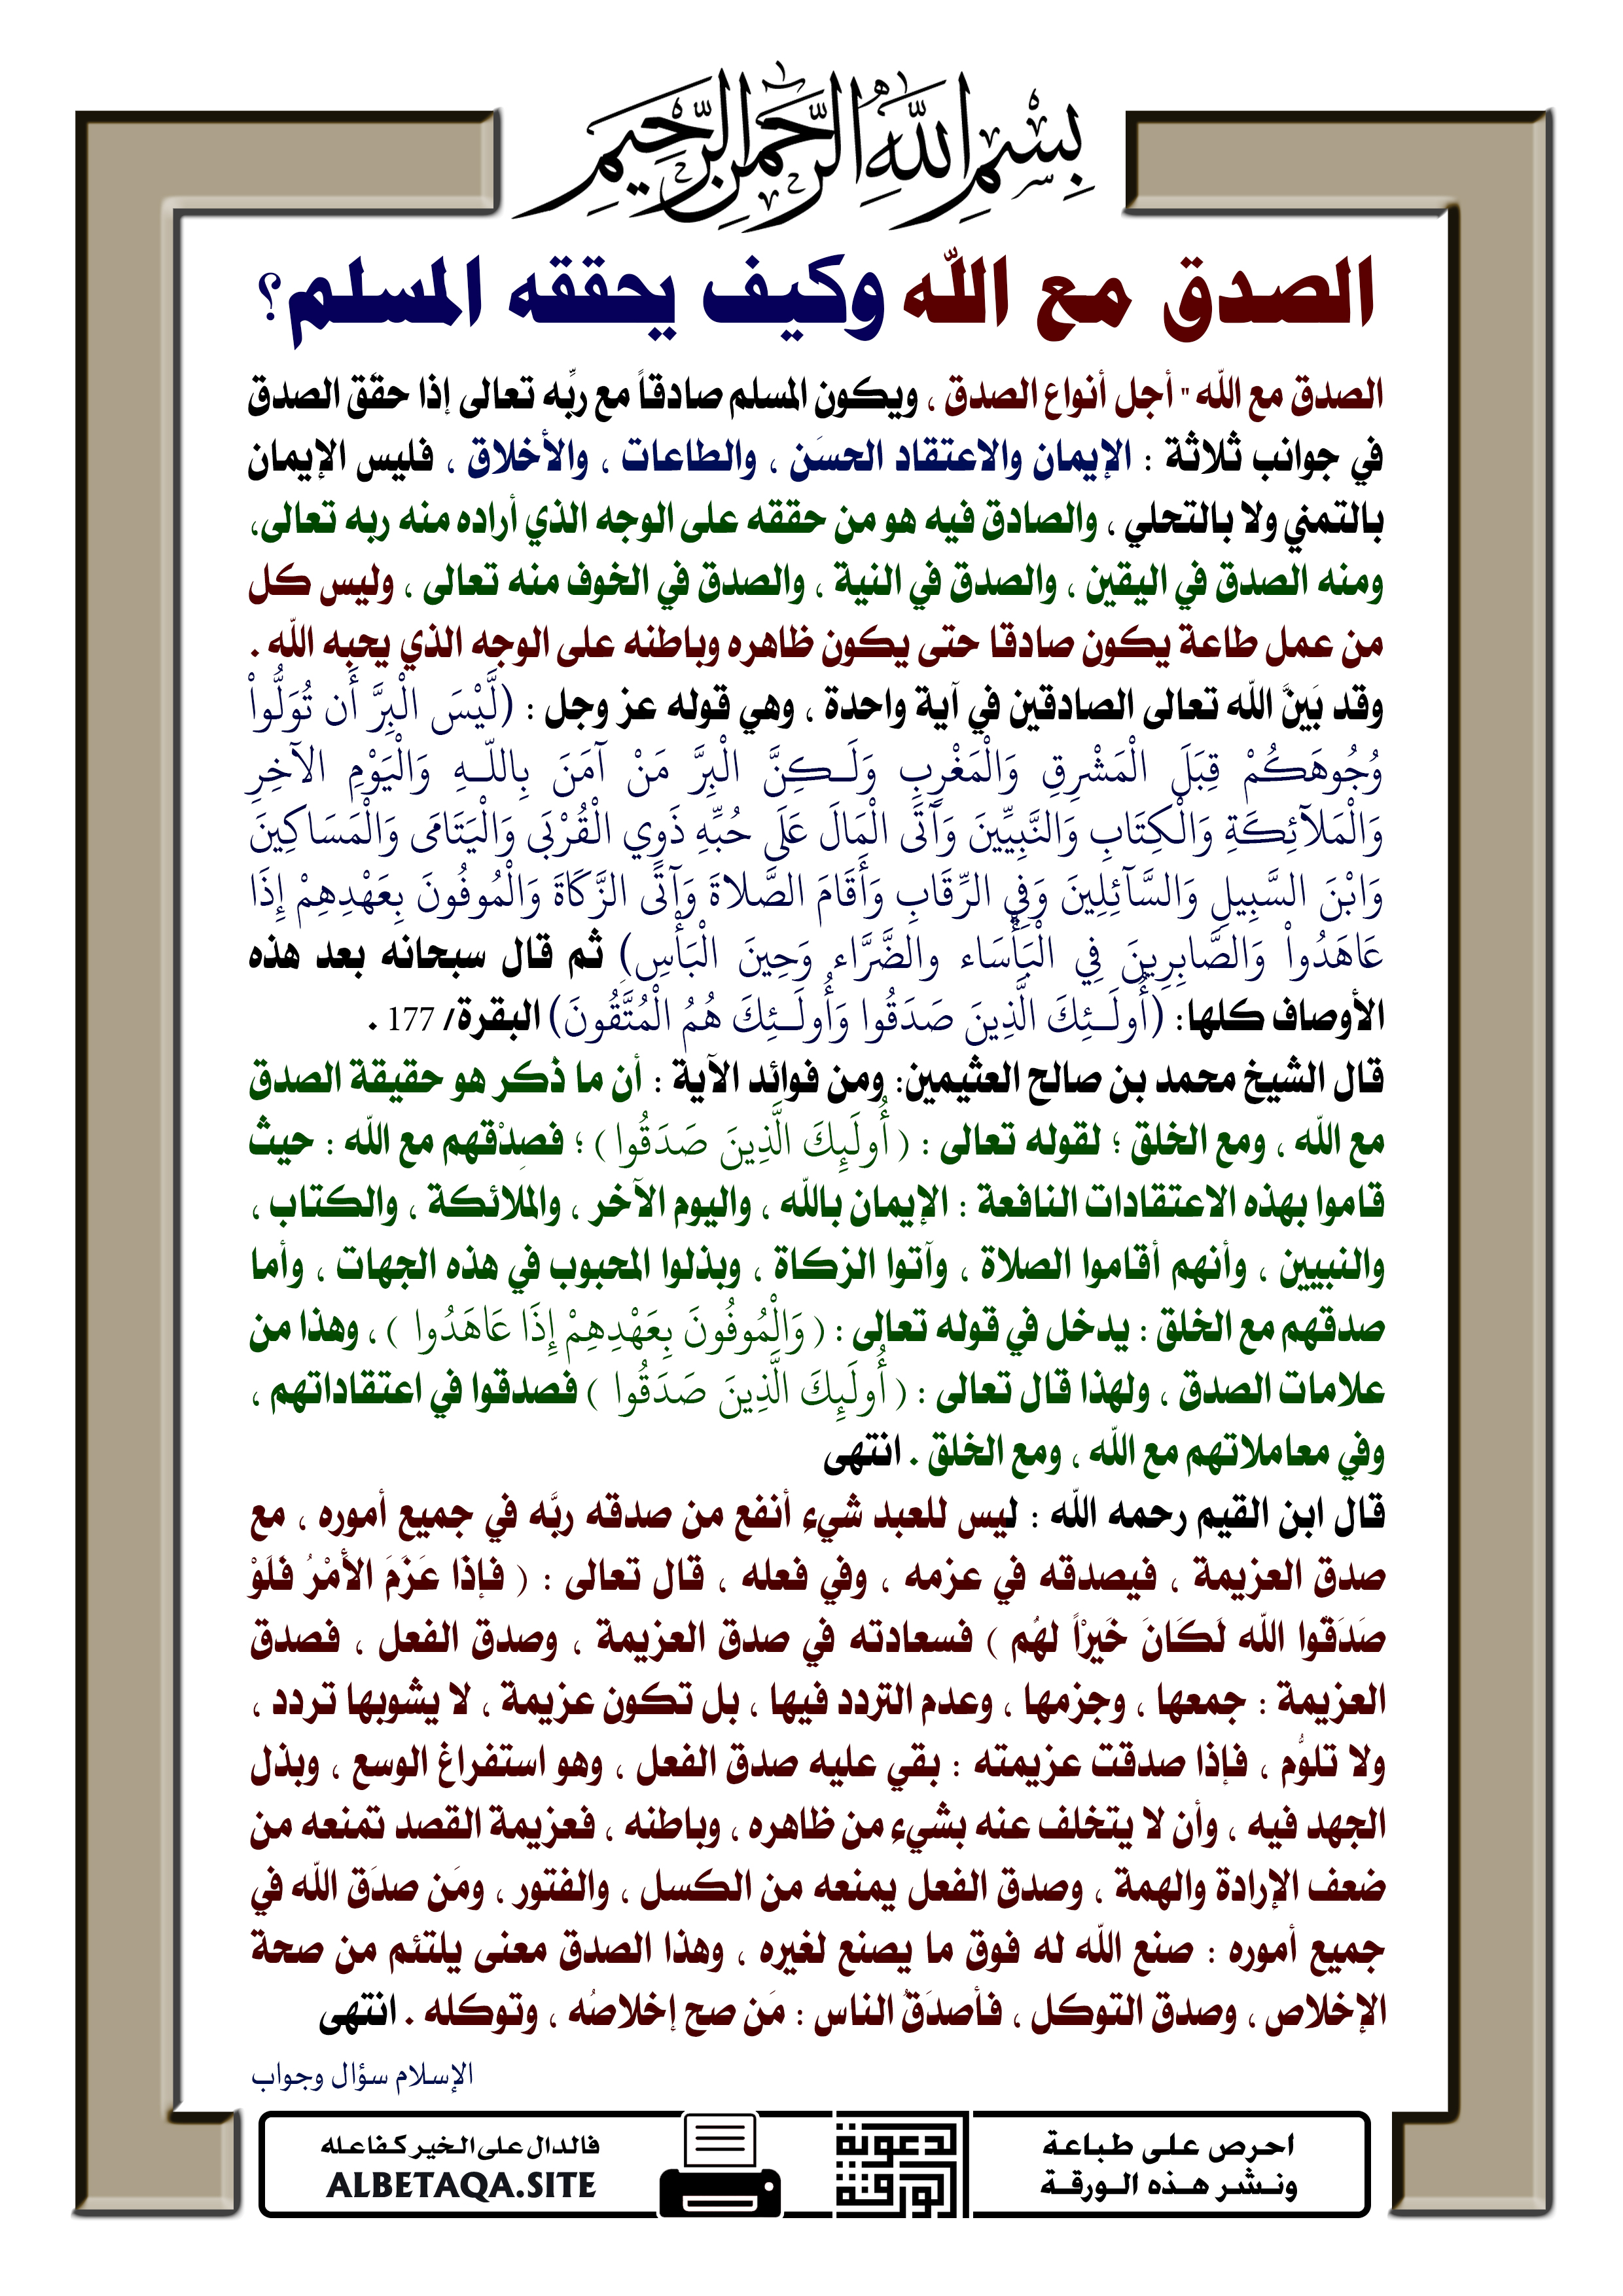 بِسْمِ اللَّهِ الرَّحْمَنِ الرَّحِيمِ
الصدق مع الله وكيف يحققه المسلم؟
الصدق مع الله " أجل أنواع الصدق ، ويكون المسلم صادقاً مع ربِّه تعالى إذا حقَّق الصدق
في جوانب ثلاثة : الإيمان والاعتقاد الحسَن ، والطاعات ، والأخلاق ، فليس الإيمان
بالتمني ولا بالتحلي ، والصادق فيه هو من حققه على الوجه الذي أراده منه ربه تعالى،
ومنه الصدق في اليقين ، والصدق في النية ، والصدق في الخوف منه تعالى ، وليس كل
من عمل طاعة يكون صادقا حتى يكون ظاهره وباطنه على الوجه الذي يحبه الله .
وقد بَينَّ الله تعالى الصادقين في آية واحدة ، وهي قوله عز وجل : (لَّيْسَ الْبِرَّ أَن تُوَلُّواْ
وُجُوهَكُمْ قِبَلَ الْمَشْرِقِ وَالْمَغْرِبِ وَلَـكِنَّ الْبِرَّ مَنْ آمَنَ بِاللّهِ وَالْيَوْمِ الآخِرِ
وَالْمَلآئِكَةِ وَالْكِتَابِ وَالنَّبِيِّينَ وَآتَى الْمَالَ عَلَى حُبِّهِ ذَوِي الْقُرْبَى وَالْيَتَامَى وَالْمَسَاكِينَ
وَابْنَ السَّبِيلِ وَالسَّآئِلِينَ وَفِي الرِّقَابِ وَأَقَامَ الصَّلاةَ وَآتَى الزَّكَاةَ وَالْمُوفُونَ بِعَهْدِهِمْ إِذَا
عَاهَدُواْ وَالصَّابِرِينَ فِي الْبَأْسَاء والضَّرَّاء وَحِينَ الْبَأْسِ) ثم قال سبحانه بعد هذه
الأوصاف كلها: (أُولَـئِكَ الَّذِينَ صَدَقُوا وَأُولَـئِكَ هُمُ الْمُتَّقُونَ) البقرة/ 177 .
قال الشيخ محمد بن صالح العثيمين: ومن فوائد الآية : أن ما ذكر هو حقيقة الصدق
مع الله ، ومع الخلق ؛ لقوله تعالى : ( أُولَئِكَ الَّذِينَ صَدَقُوا ) ؛ فصِدْقهم مع الله : حيث
قاموا بهذه الاعتقادات النافعة : الإيمان بالله ، واليوم الآخر ، والملائكة ، والكتاب ،
والنبيين ، وأنهم أقاموا الصلاة ، وآتوا الزكاة ، وبذلوا المحبوب في هذه الجهات ، وأما
صدقهم مع الخلق : يدخل في قوله تعالى : ( وَالْمُوفُونَ بِعَهْدِهِمْ إِذَا عَاهَدُوا ) ، وهذا من
علامات الصدق ، ولهذا قال تعالى : ( أُولَئِكَ الَّذِينَ صَدَقُوا ) فصدقوا في اعتقاداتهم ،
وفي معاملاتهم مع الله ، ومع الخلق . انتهى
قال ابن القيم رحمه الله : ليس للعبد شيء أنفع من صدقه ربَّه في جميع أموره ، مع
صدق العزيمة ، فيصدقه في عزمه ، وفي فعله ، قال تعالى : ( فإذا عَزَمَ الأَمْرُ فَلَوْ
صَدَقُوا الله لَكَانَ خَيْراً لهُم ) فسعادته في صدق العزيمة ، وصدق الفعل ، فصدق
العزيمة : جمعها ، وجزمها ، وعدم التردد فيها ، بل تكون عزيمة ، لا يشوبها تردد ،
ولا تلوُّم ، فإذا صدقت عزيمته : بقي عليه صدق الفعل ، وهو استفراغ الوسع ، وبذل
الجهد فيه ، وأن لا يتخلف عنه بشيء من ظاهره ، وباطنه ، فعزيمة القصد تمنعه من
ضعف الإرادة والهمة ، وصدق الفعل يمنعه من الكسل ، والفتور ، ومَن صدَق الله في
جميع أموره : صنع الله له فوق ما يصنع لغيره ، وهذا الصدق معنى يلتئم من صحة
الإخلاص ، وصدق التوكل ، فأصدَقُ الناس : مَن صح إخلاصُه ، وتوكله . انتهى
الإسلام سؤال وجواب
احرص على طباعة
ونشر هذه الورقة
الورقة
الدعوية
فالدال على الخير كفاعله
ALBETAQA.SITE